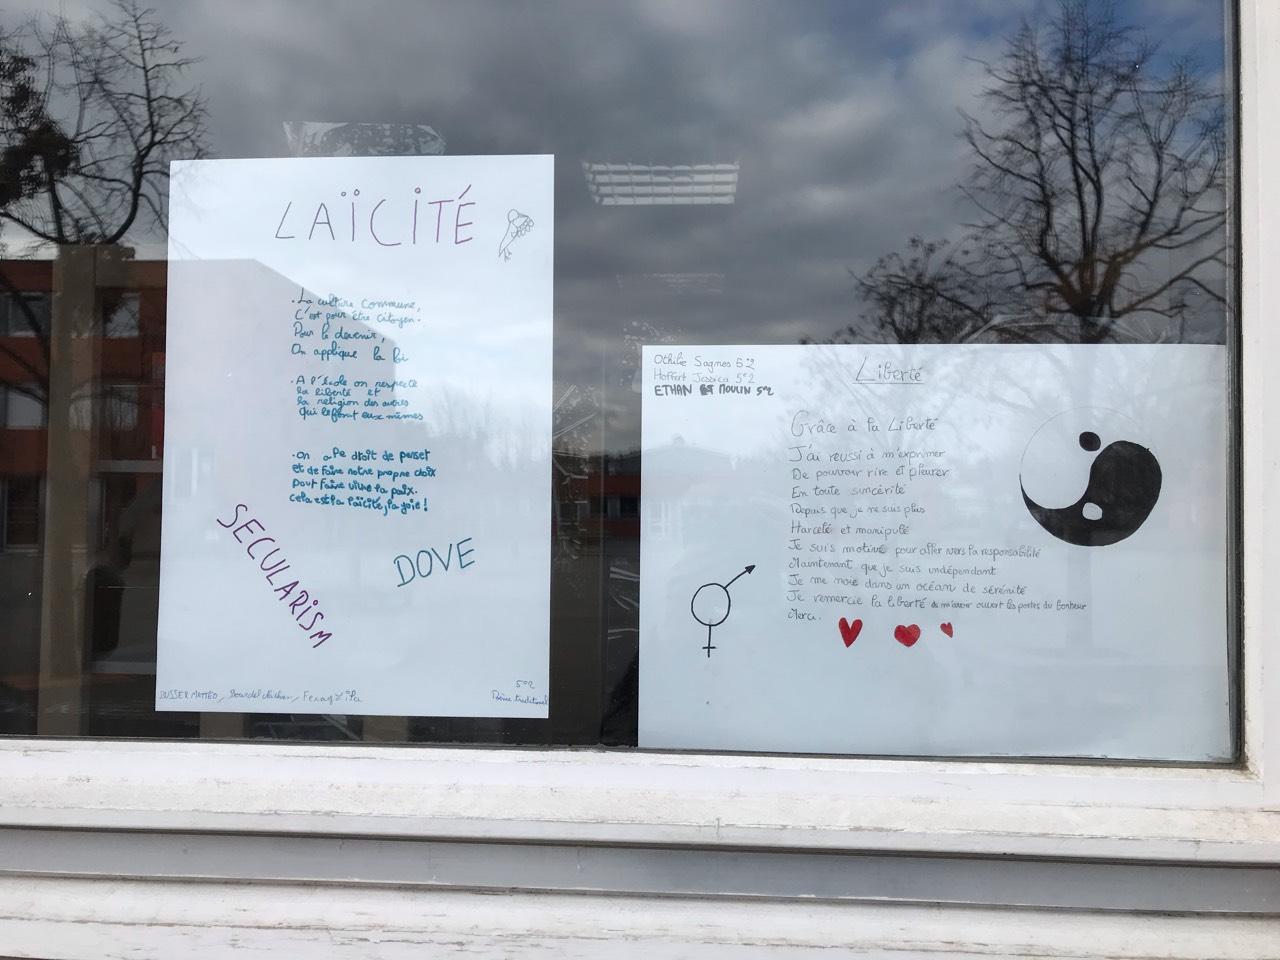 LAÏCITÉ
. La culture commune,
C'est pour être citoyen.
Pour le devenir,
On applique la loi
. A l'école on respecte
la liberté et
la religion des autres
qui le font eux mêmes
. On a le droit de penser
et de faire notre propre choix
pour faire vivre la paix.
Cela est la laïcité, la joie !
SECULARISM
DOVE
BUSSER MATTÉO,
5e2
Poème traditionel
Othilie Sagnes 5e2
Hoffert Jessica 5e2
ETHAN MOULIN 5e2
Liberté
Grâce à la Liberté
J'ai reussi à m'exprimer
De pouvoir rire et pleurer
En toute sincérité
Depuis que je ne suis plus
Harcelé et manipulé
Je suis motivé pour aller vers la responsabilité
Maintenant que je suis indépendant
Je me noie dans un océan de sérénité
Je remercie la liberté de m'avoir ouvert les portes du bonheur
Merci.